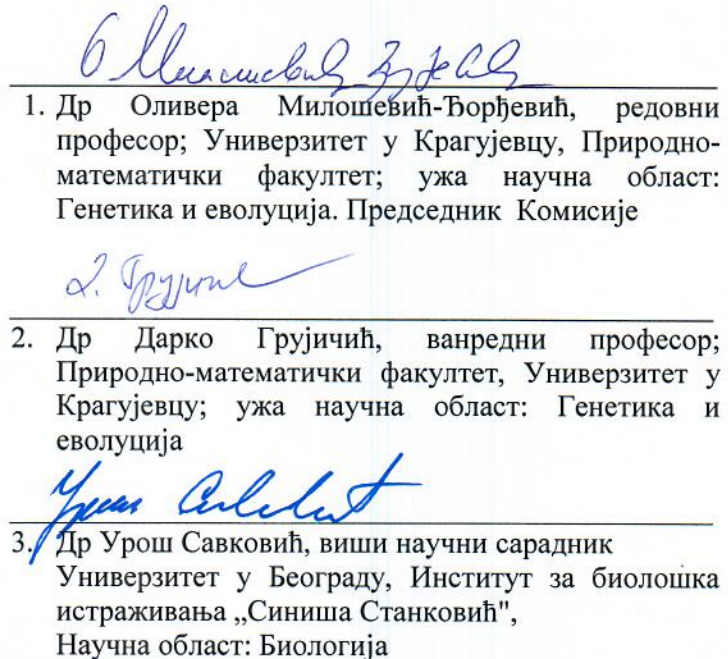 1. Др Оливера Милошевић-Ђорђевић, редовни
професор; Универзитет у Крагујевцу, Природно-
математички факултет; ужа научна област:
Генетика и еволуција. Председник Комисије
2. Др Дарко Грујичић, ванредни професор;
Природно-математички факултет, Универзитет у
Крагујевцу; ужа научна област: Генетика и
еволуција
3. Др Урош Савковић, виши научни сарадник
Универзитет у Београду, Институт за биолошка
истраживања „Синиша Станковић",
Научна област: Биологија